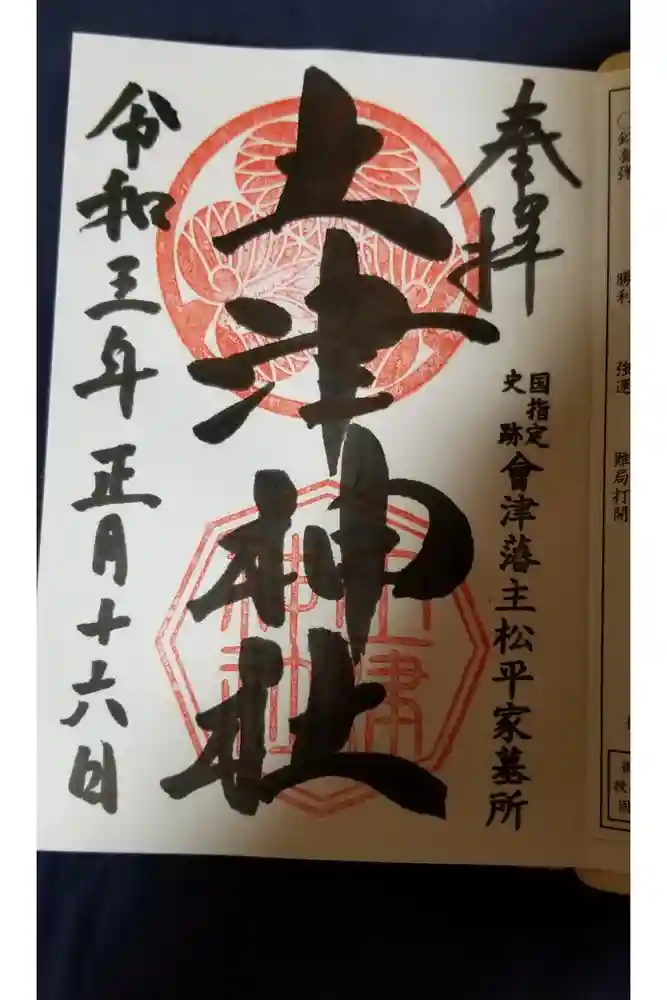 奉拝
国指定
史跡
會津藩主松平家墓所
土津神社
令和三年正月十六日
土津
神社
勝利
強運
難局打開